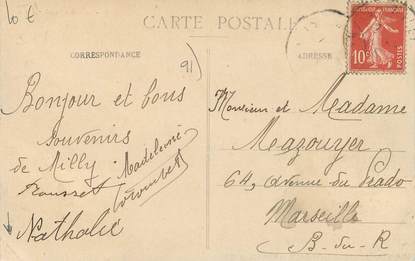 10 €
CARTE POSTALE
CORRESPONDANCE
ADRESSE
91)
Bonjour et bons
souvenirs
de Milly
Madeleine
Nathalie
Monsieur et Madame
Mazouyer
64, avenue du Prado
Marseille
B-du-R
10c
POSTES